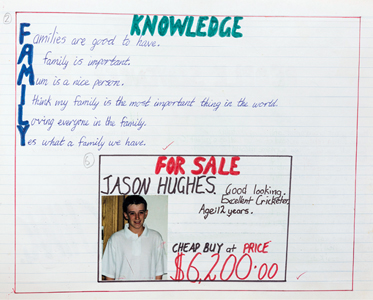 2
KNOWLEDGE
Families are good to have.
A family is important.
Mum is a nice person.
I think my family is the most important thing in the world
Loving everyone in the family.
Yes what a family we have.
5
FOR SALE
JASON HUGHES. Good looking.
Excellent Cricketer.
Age 12 years.
CHEAP BUY at PRICE
$6,200.00